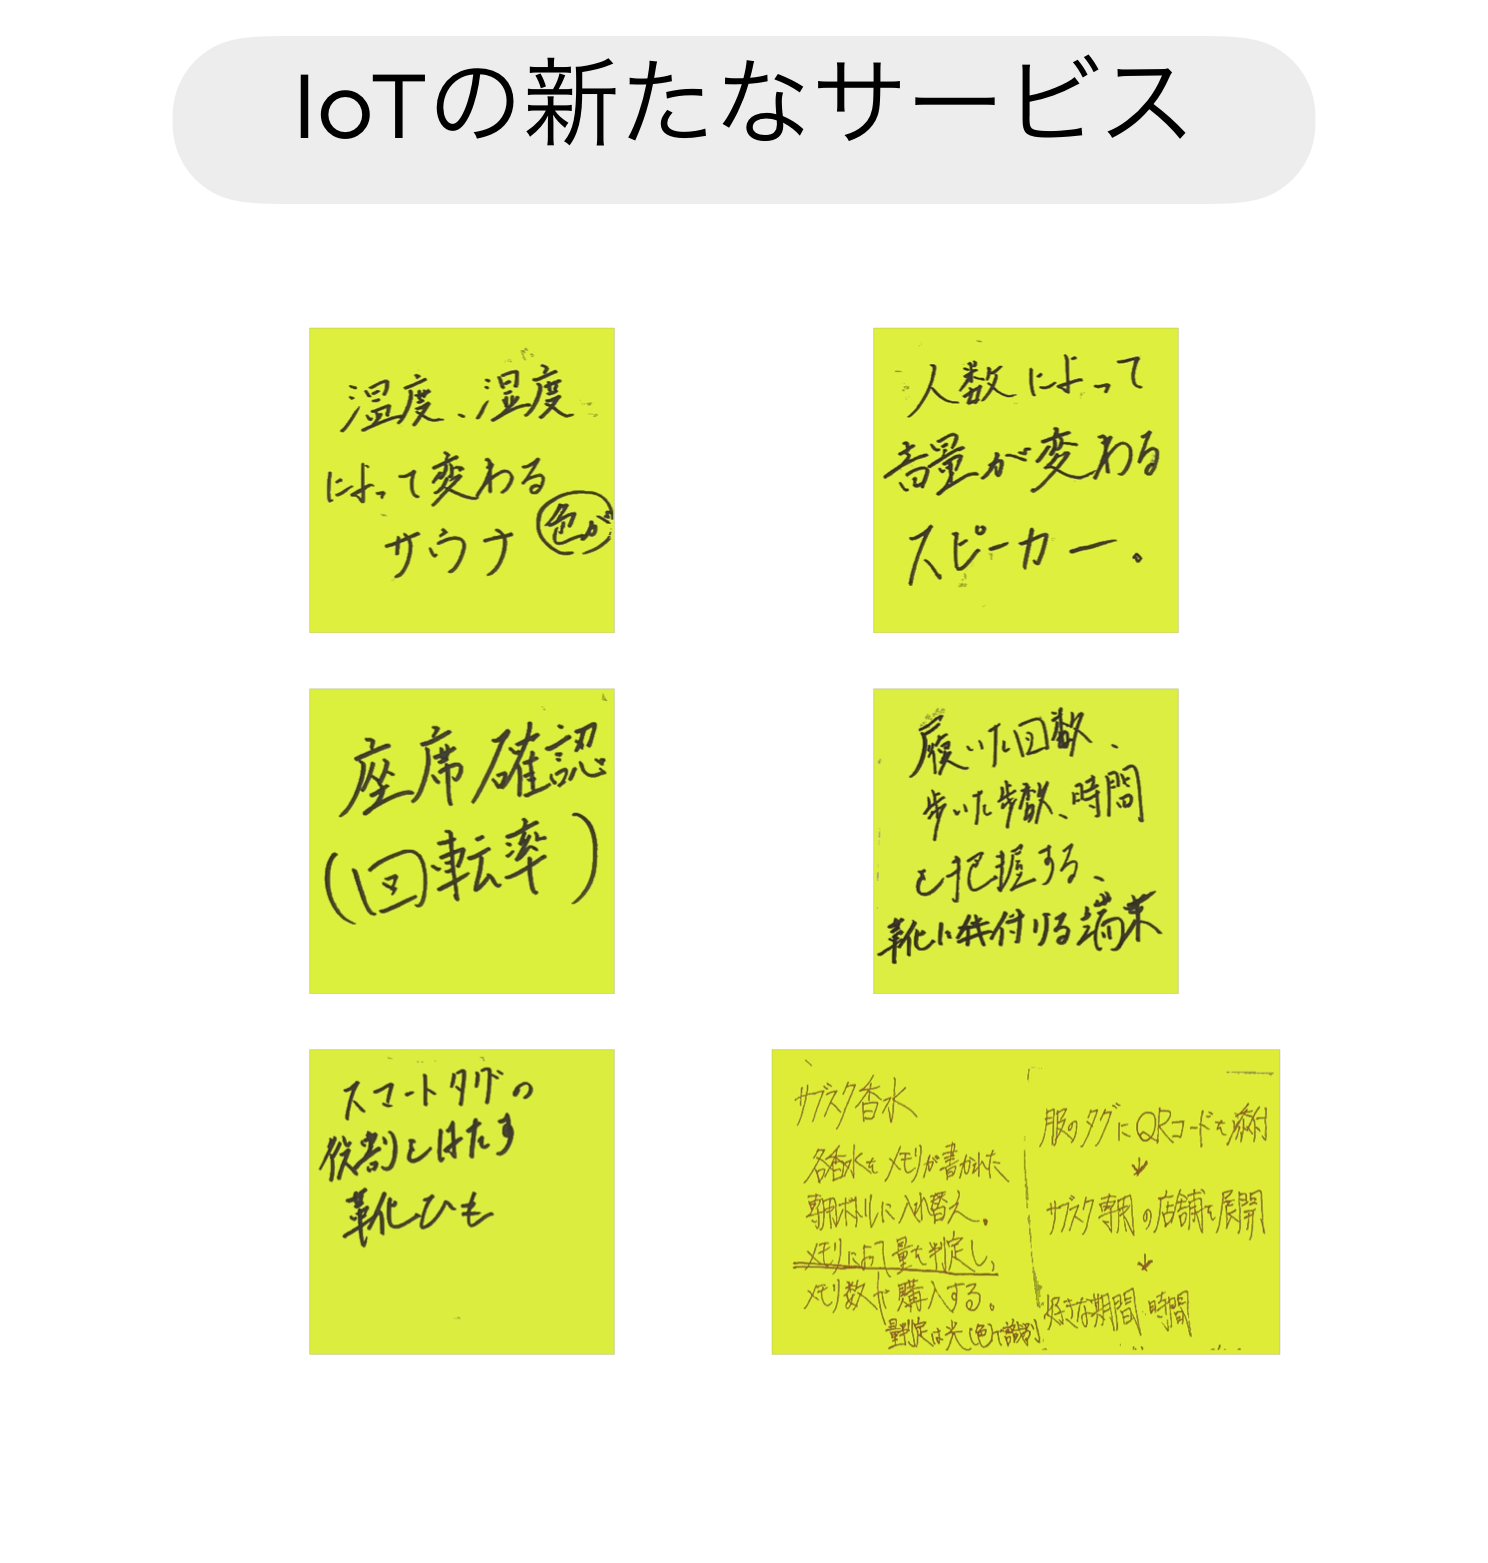 IoTの新たなサービス
温度、湿度
によって変わる
色が
サウナ
人数によって
音量が変わる
スピーカー。
座席確認
(回転率)
履いた回数、
歩いた歩数、時間
を把握する、
靴に件付ける端末
スマートタグの
役割をはたす
靴ひも
サブスク香水
各香水をメモリが書かれた
専用ボトルに入れ替え。
メモリによって量を判定し、
メモリ数か購入する。
量判定は光(色)で識別
服のタグにQRコードを添付
↓
サブスク専用の店舗を展開
↓
好きな期間 時間